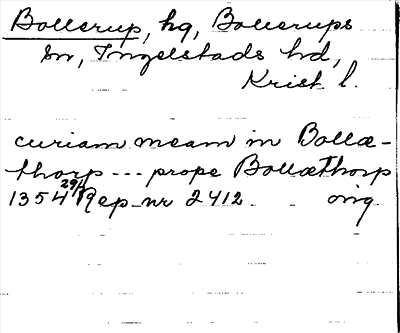 Bollerup, hg, Bollerups
sn, Ingelstads hd,
Krist l.
curiam meam in Bollæ-
thorp --- prope Bollæthorp
1354 29/1 Rep nr 2412. orig